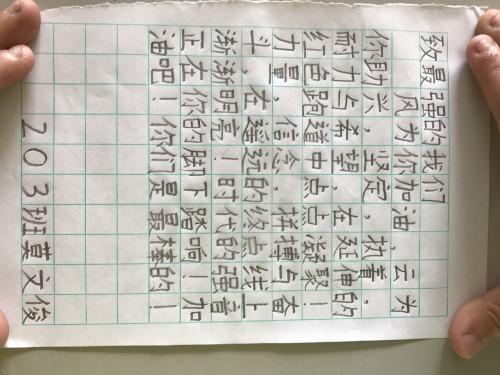 致最强的我们
风为你加油,云为
你助兴,坚定,执着,
耐力与希望,在延伸的
红色跑道中点点凝聚!
力量,信念,拼搏与奋
斗,在遥远的终点线上
渐渐明亮!时代的强音
正在你的脚下踏响!加
油吧!你们是最棒的!
203班莫文俊